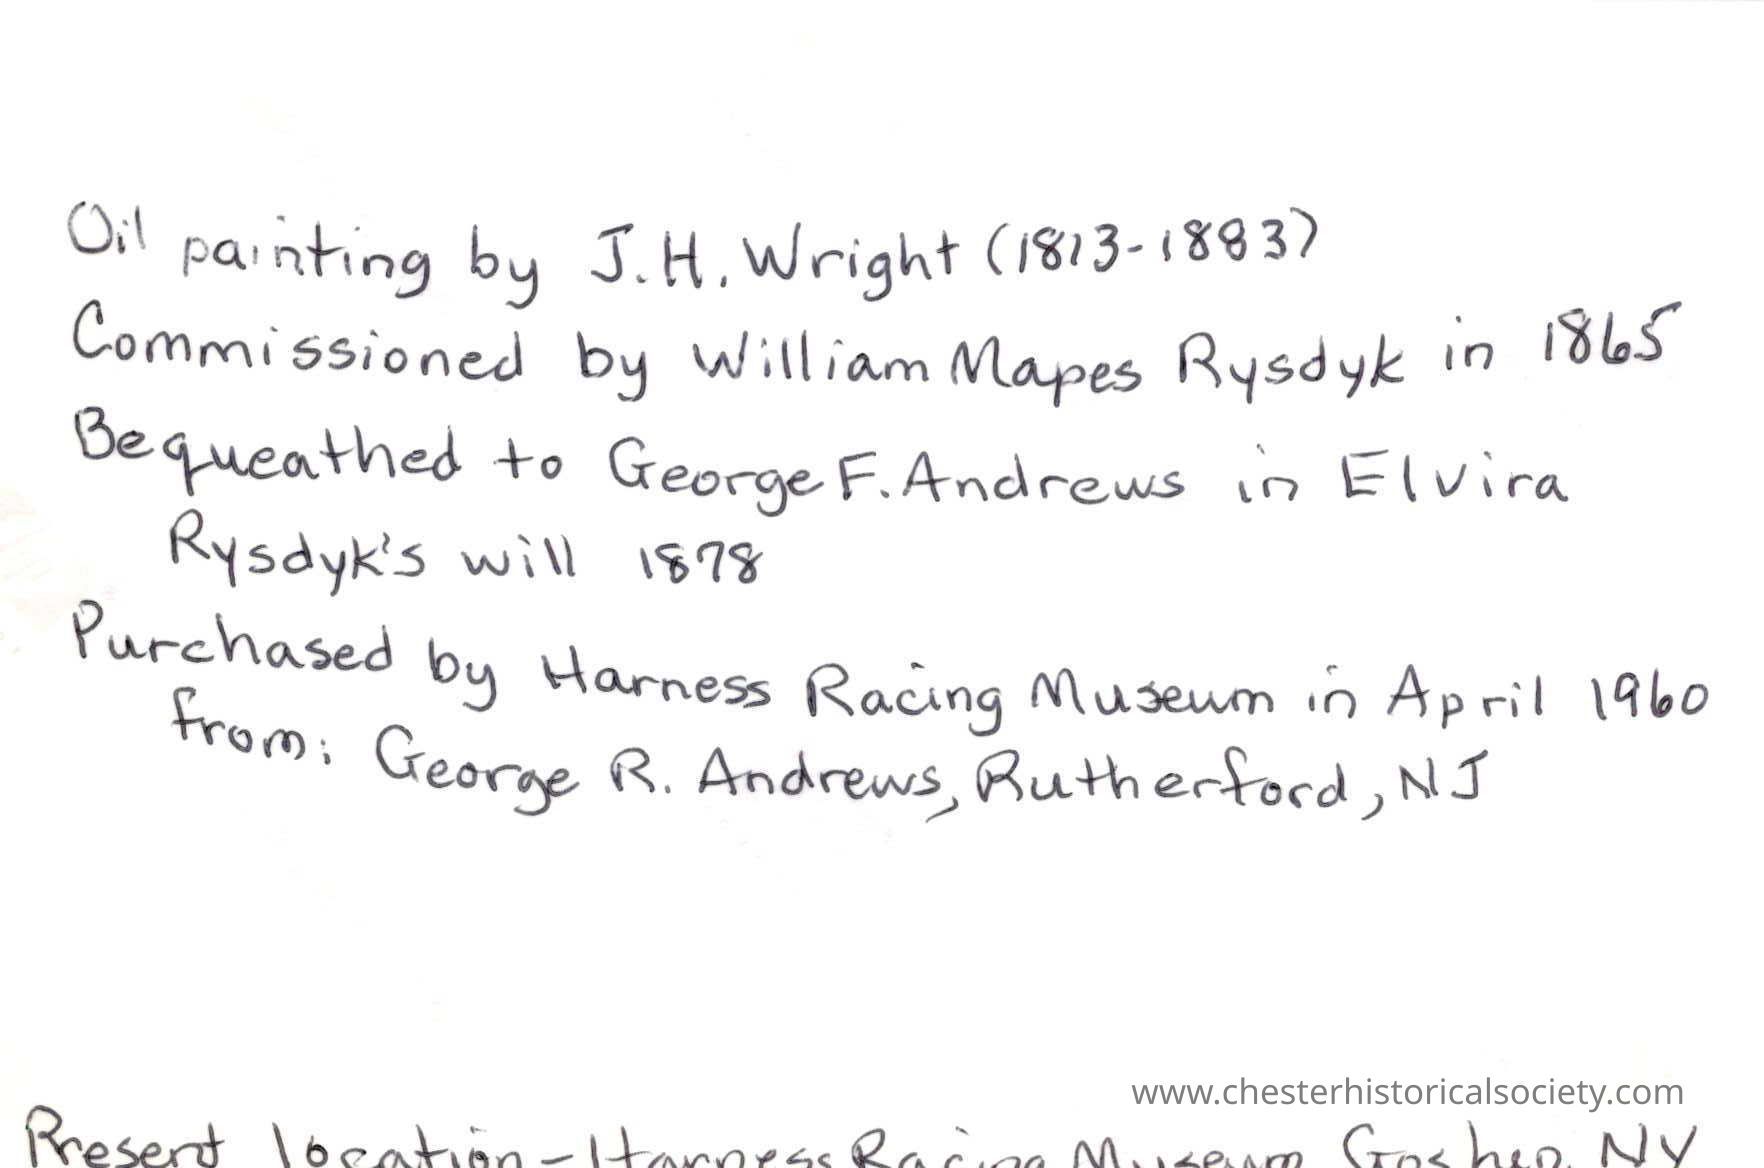 Oil painting by J.H. Wright (1813-1883)
Commissioned by William Mapes Rysdyk in 1865
Bequeathed to George F. Andrews in Elvira
Rysdyk's will 1878
Purchased by Harness Racing Museum in April 1960
from: George R. Andrews, Rutherford, NJ
www.chesterhistoricalsociety.com
Present location - Harness Racing Museum Goshen, NY